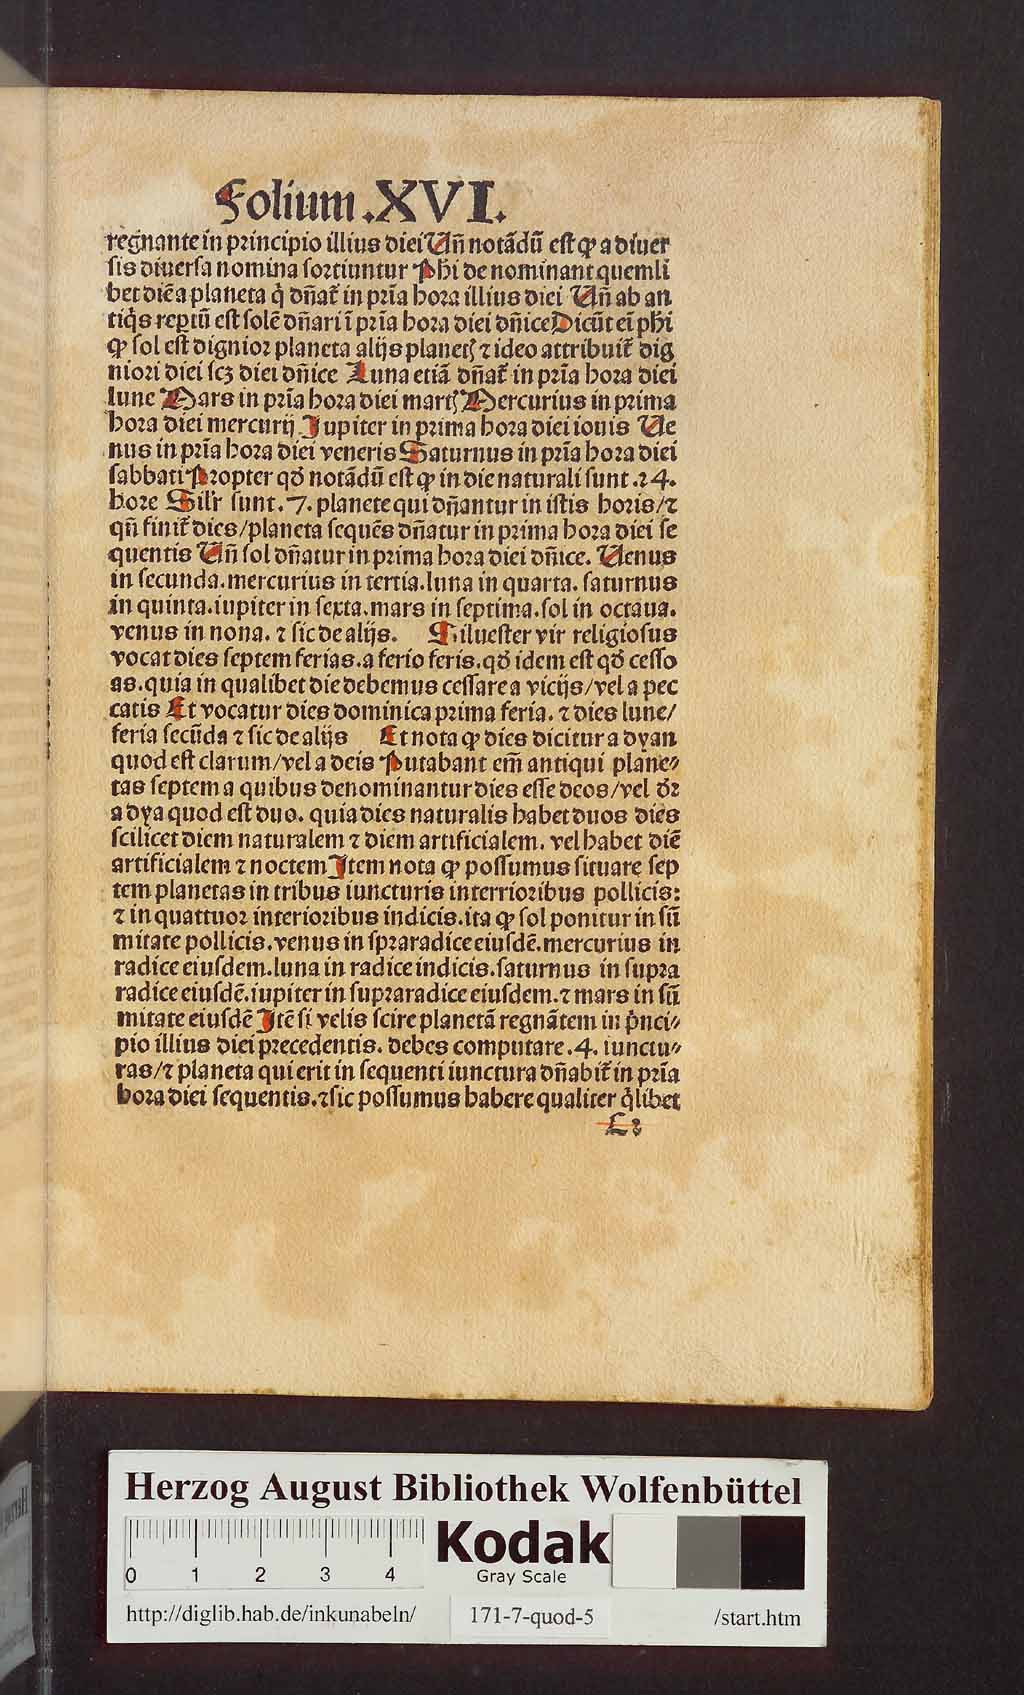 Folium .XVI.
regnante in principio illius diei Uñ notãdũ est ꝙ a diuer
sis diuersa nomina sortiuntur Phi de nominant quemli
bet diẽ a planeta q̇ dñat̃ in pr̃ia hora illius diei Uñ ab an
tiq̇s reptũ est solẽ dñari ĩ pr̃ia hora diei dñice Dicũt ei phi
ꝙ sol est dignior planeta alijs planetꝭ ⁊ ideo attribuit̃ dig
niori diei scꝫ diei dñice Luna etiã dñat̃ in pr̃ia hora diei
lune Mars in pr̃ia hora diei martꝭ Mercurius in prima
hora diei mercurij Jupiter in prima hora diei iouis Ue
nus in pr̃ia hora diei veneris Saturnus in pr̃ia hora diei
sabbati Propter qđ notãdũ est ꝙ in die naturali sunt .24.
hore Sil'r sunt .7. planete qui dñantur in istis horis/⁊
qñ finit̃ dies/planeta sequẽs dñatur in prima hora diei se
quentis Uñ sol dñatur in prima hora diei dñice. Uenus
in secunda.mercurius in tertia.luna in quarta. saturnus
in quinta.iupiter in sexta.mars in septima.sol in octaua.
venus in nona. ⁊ sic de alijs. Siluester vir religiosus
vocat dies septem ferias.a ferio feris.qđ idem est qđ cesso
as.quia in qualibet die debemus cessare a vicijs/vel a pec
catis Et vocatur dies dominica prima feria. ⁊ dies lune/
feria secũda ⁊ sic de alijs Et nota ꝙ dies dicitur a dyan
quod est clarum/vel a deis Putabant em̃ antiqui plane⸗
tas septem a quibus denominantur dies esse deos/vel dr̃
a dya quod est duo. quia dies naturalis habet duos dies
scilicet diem naturalem ⁊ diem artificialem. vel habet diẽ
artificialem ⁊ noctem Item nota ꝙ possumus situare sep
tem planetas in tribus iuncturis interrioribus pollicis:
⁊ in quattuor interioribus indicis.ita ꝙ sol ponitur in sũ
mitate pollicis.venus in spraradice eiusdẽ.mercurius in
radice eiusdem.luna in radice indicis.saturnus in supra
radice eiusdẽ.iupiter in supraradice eiusdem.⁊ mars in sũ
mitate eiusdẽ Itẽ si velis scire planetã regnãtem in p̃nci⸗
pio illius diei precedentis. debes computare .4. iunctu⸗
ras/⁊ planeta qui erit in sequenti iunctura dñabit̃ in pr̃ia
hora diei sequentis.⁊ sic possumus habere qualiter q̇libet
Herzog August Bibliothek Wolfenbüttel
0 1 2 3 4
Kodak
Gray Scale
http://diglib.hab.de/inkunabeln/ 171-7-quod-5 /start.htm